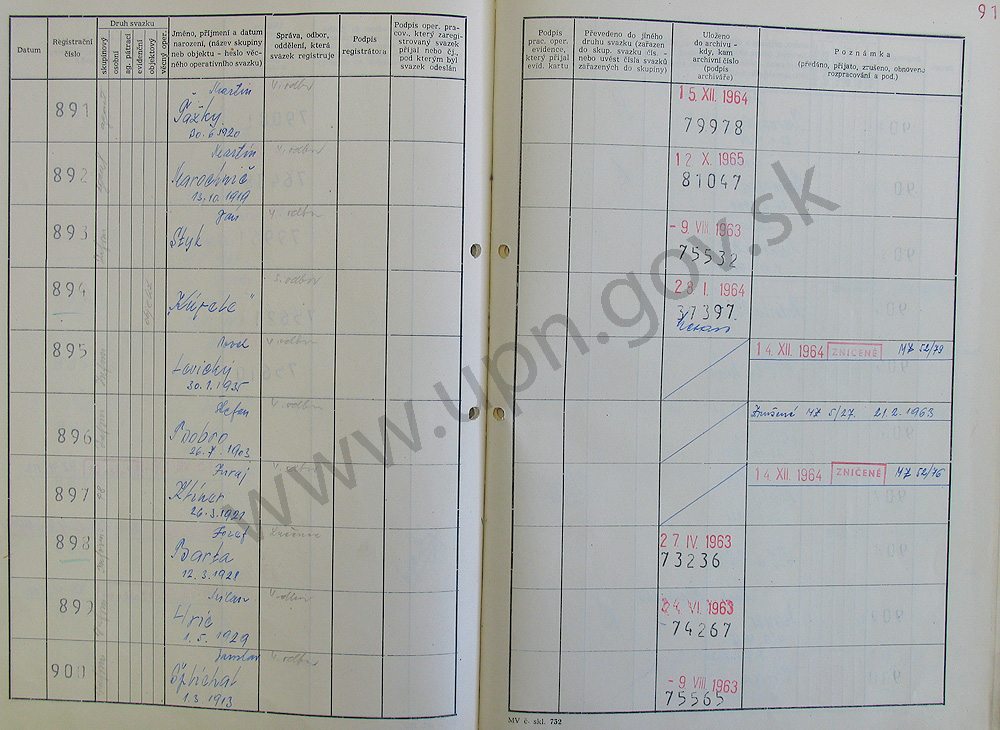 91
Datum
Registrační
číslo
Druh svazku
skupinový
osobní
ag. pátrací
evidenční
objektový
věcný oper.
Jméno, příjmení a datum
narození, (název skupiny
neb objektu - číslo věc-
ného operativního svazku)
Správa, odbor,
oddělení, která
svazek registruje
Podpis
registrátora
Podpis oper. pra-
cov., který zareg-
istrovaný svazek
přijal neb č.j.
pod kterým byl
svazek odeslán
Podpis
prac. oper.
evidence,
který přijal
evid. kartu
Převedeno do jiného
druhu svazku (zařazen
do skup. svazku čís. -
nebo uvést čísla svazků
zařazených do skupiny)
Uloženo
do archivu -
kdy, kam
archivní číslo
(podpis
archiváře)
Poznámka
(předáno, přijato, zrušeno, obnoveno
rozpracování a pod.)
891
Martin
Ťažký
30.6.1920
15. XII. 1964
79978
892
Martin
13.10.1919
12 X. 1965
81047
893
Jan
Styk
- 9. VIII. 1963
75532
894
28. I. 1964
37397
895
Pavel
Levický
30.1.1935
14. XII. 1964 ZNIČENÉ MZ 52/79
896
Štefan
Bobro
26.7.1903
Zrušené MZ 5/27 21.2.1963
897
Juraj
26.3.1921
14. XII. 1964 ZNIČENÉ MZ 52/76
898
Jozef
Barta
12.3.1921
27 IV. 1963
73236
899
Milan
Hric
1.5.1929
24. VI. 1963
74267
900
Jaroslav
Šplíchal
1.3.1913
- 9 VIII. 1963
75565
MV č. skl. 752
www.upn.gov.sk